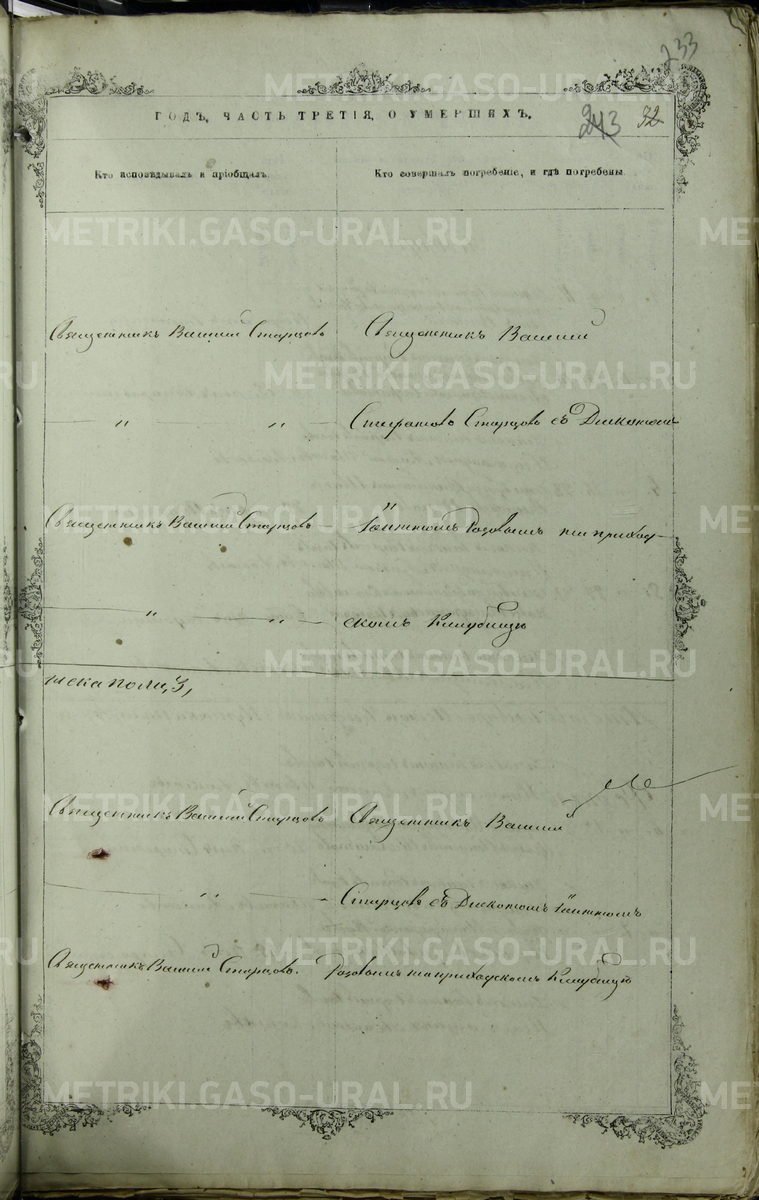 233
ГОДЪ, ЧАСТЬ ТРЕТІЯ, О УМЕРШИХЪ.
243 32
Кто исповѣдывалъ и пріобщалъ.
Кто совершалъ погребеніе, и гдѣ погребены.
Священникъ Василій Старцовъ
Священникъ Василій
" "
Старцовъ съ Діакономъ
Священникъ Василій Старцовъ
Розовымъ на приход-
" "
скомъ Кладбищѣ
Священникъ Василій Старцовъ
Священникъ Василій
"
Старцовъ съ Діакономъ
Священникъ Василій Старцовъ.
Розовымъ на приходскомъ Кладбищѣ
METRIKI.GASO-URAL.RU